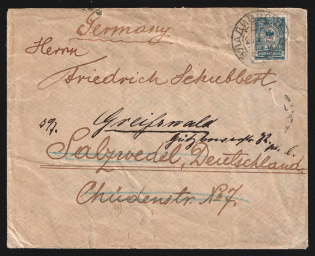 Germany
Herrn
Friedrich Schubbert
Greifswald
Salzwedel, Deutschland
Chüdenstr. № 7.